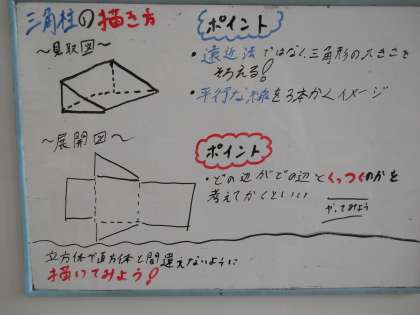 三角柱の描き方
〜見取図〜
ポイント
・遠近法ではなく三角形の大きさを
そろえる!
・平行な線を3本かくイメージ
〜展開図〜
ポイント
・どの辺がどの辺とくっつくのかを
考えてかくといい
やってみよう
立方体や直方体と間違えないように
描いてみよう!